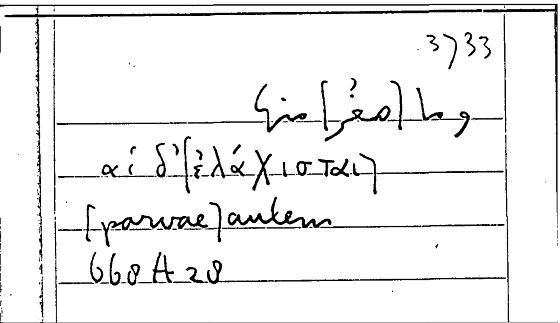 3733
وما [صغر؟] منها
αἱ δ'[ἐλάχισται]
[parvae] autem
668 A 28